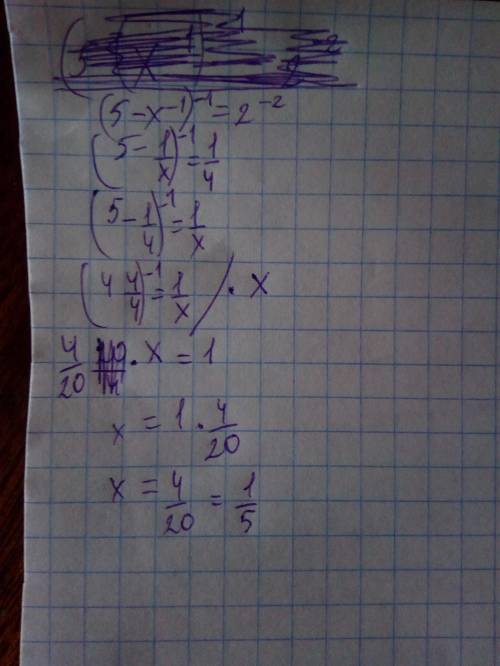 (5 - x⁻¹)⁻¹ = 2⁻²
(5 - 1/x)⁻¹ = 1/4
(5 - 1/4)⁻¹ = 1/x
(4 4/4)⁻¹ = 1/x) · x
4/20 · x = 1
x = 1 · 4/20
x = 4/20 = 1/5